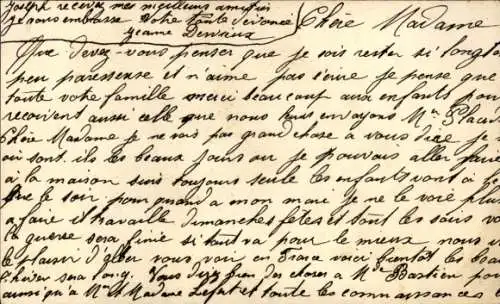 Joseph recevez mes meilleurs amitiés
Je vous embrasse Votre toute dévouée
Jeanne Devaux
Chère Madame
Que devez-vous penser que je sois rester si longt
peu paresseuse et n'aime pas écrire je pense que
toute votre famille merci beaucoup aux enfants pour
reçoivent aussi celle que nous leurs envoyons Mr Placid
Chère Madame je ne vais pas grand chose a vous dire je
où sont ils les beaux jours ou je pouvais aller faire
à la maison suis toujours seule les enfants vont à l'é
que le soir pour quand a mon mari je ne le voie plus
a faire il travaille dimanches fêtes et tout les soirs
la guerre sera finie si tout va pour le mieux nous
le plaisir d'aller vous voir en France voici bientôt les beau
l'hiver sera long. Vous direz bien des choses a Mde Bastien
ainsi qu'a Mr et Madame et toute les connaissances